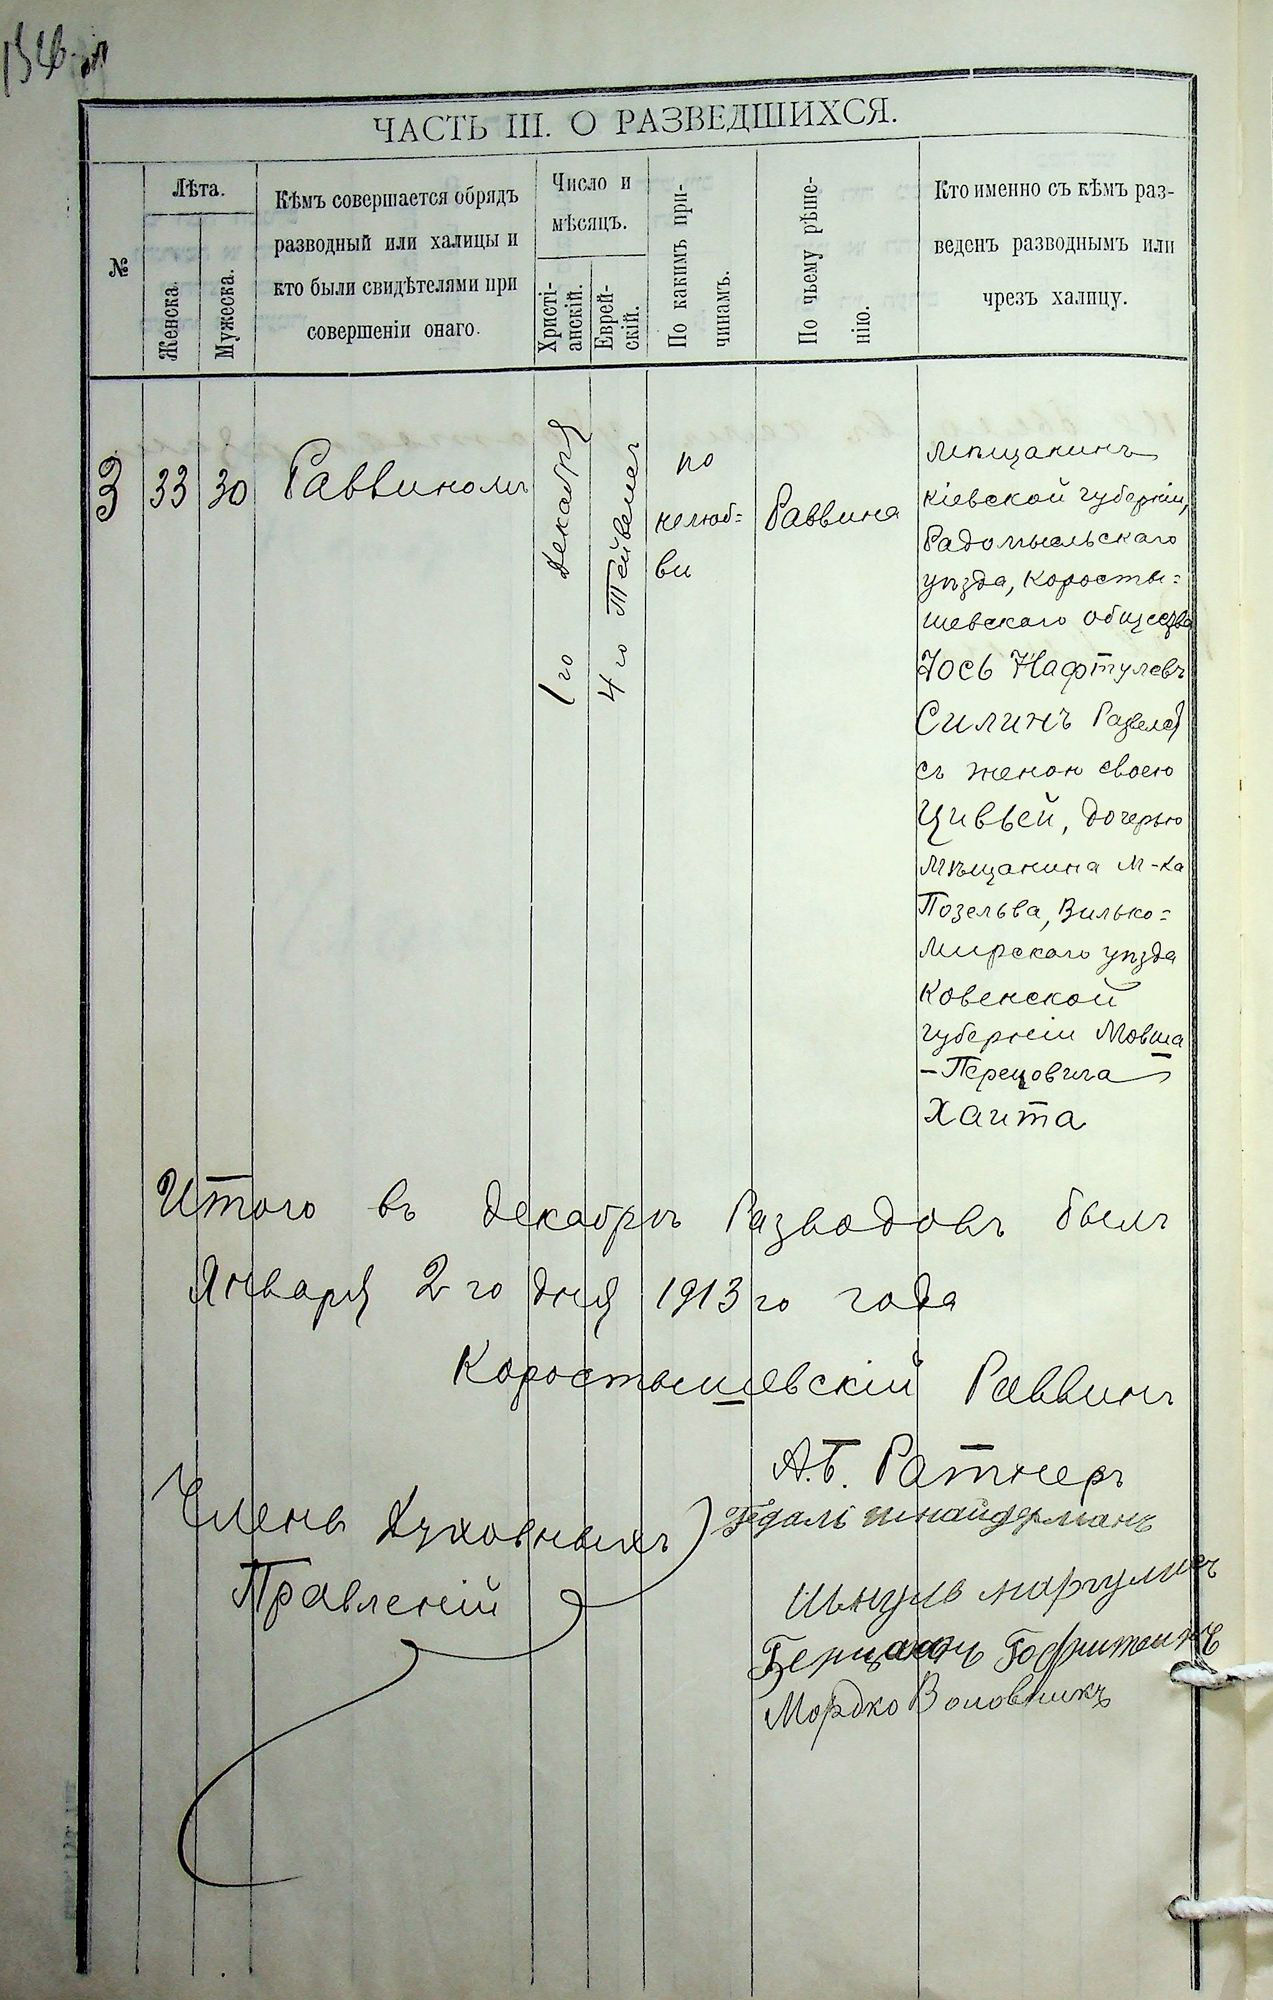 ЧАСТЬ III. О РАЗВЕДШИХСЯ.
№
Лѣта.
Женска.
Мужеска.
Кѣмъ совершается обрядъ
разводный или халицы и
кто были свидѣтелями при
совершеніи онаго.
Число и
мѣсяцъ.
Христі-
анскій.
Еврей-
скій.
По какимъ при-
чинамъ.
По чьему рѣше-
нію.
Кто именно съ кѣмъ раз-
веденъ разводнымъ или
чрезъ халицу.
3
33
30
Раввиномъ
1го Декабря
4го Тейвеса
по
нелюб=
ви
Раввина
Мѣщанинъ
Кіевской губерніи,
Радомысльскаго
уѣзда, Коросты=
шевскаго общества
Іось Нафтулевъ
Силинъ Развелся
съ женою своею
Цивьей, дочерью
Мѣщанина м-ка
Позельва, Вилько=
мирскаго уѣзда
Ковенской
губерніи Мовша
-Перецовича
Хаита
Итого въ декабрѣ Разводовъ былъ
Января 2го дня 1913го года
Коростышевскій Раввинъ
А.Б. Ратнеръ
Члены Духовныхъ
Правленій
Гедалі шнайдерманъ
маргулисъ
Мордко Воловникъ